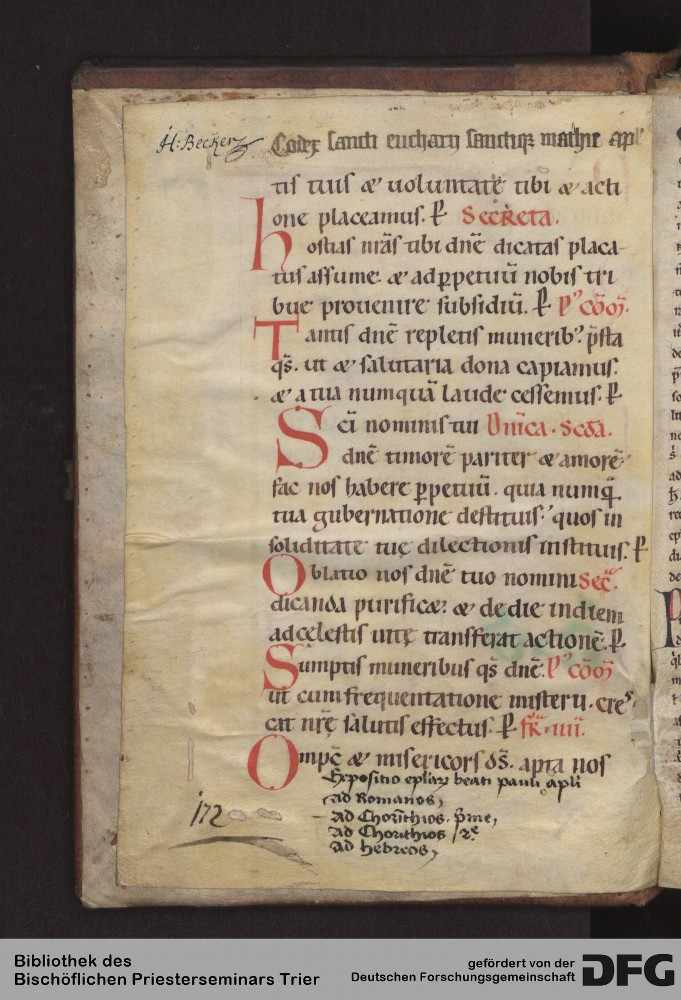 H: Becker
Codex sancti eucharii sanctique mathie apl
tis tuis & uoluntate tibi & acti
one placeamus. P̄ Secreta.
hostias nr̄as tibi dn̄e dicatas placa-
tus assume. & ad ꝑpetuū nobis tri
bue prouenire subsidiū. P̄ Pꝰ cōm̄.
Tantis dn̄e repletis munerib; p̄sta
qs̄. ut & salutaria dona capiamus.
& a tua numquā laude cessemus. P̄
Sci nominis tui Dn̄ica. Scd̄a.
dn̄e timorē pariter & amorē
fac nos habere ꝑpetuū. quia numq̄
tua gubernatione destituis. quos in
soliditate tuę dilectionis instituis. P̄
Oblatio nos dn̄e tuo nomini Sec̄.
dicanda purific&. & de die in diem
ad cęlestis uitę transferat actionē. P̄
Sumptis muneribus qs̄ dn̄e. Pꝰ cōm̄
ut cum frequentatione misterii. cres
cat nr̄ę salutis effectus. P̄ fr̄. iiii.
Omp̄c & misericors ds̄. apta nos
Expositio eplarꝝ beati pauli apli
ad Romanos,
ad Chorīthios. p̄me,
ad Chorīthios / 2e
ad hebreos,
172
Bibliothek des
Bischöflichen Priesterseminars Trier
gefördert von der
Deutschen Forschungsgemeinschaft
DFG